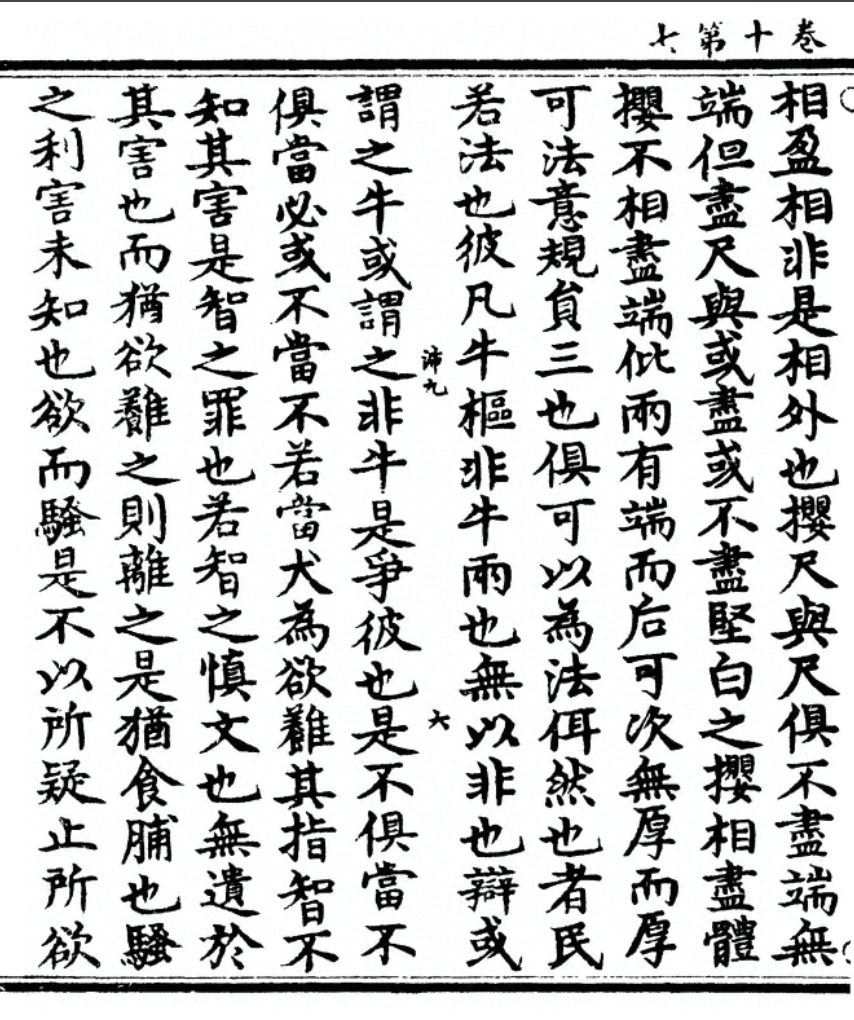 卷十第七
相盈相非是相外也攖尺與尺俱不盡端無
端但盡尺與或盡或不盡堅白之攖相盡體
攖不相盡端仳兩有端而后可次無厚而厚
可法意規員三也俱可以為法佴然也者民
若法也彼凡牛樞非牛兩也無以非也辯或
沛九
六
謂之牛或謂之非牛是爭彼也是不俱當不
俱當必或不當不若當犬為欲難其指智不
知其害是智之罪也若智之慎文也無遺於
其害也而猶欲難之則離之是猶食脯也騷
之利害未知也欲而騷是不以所疑止所欲